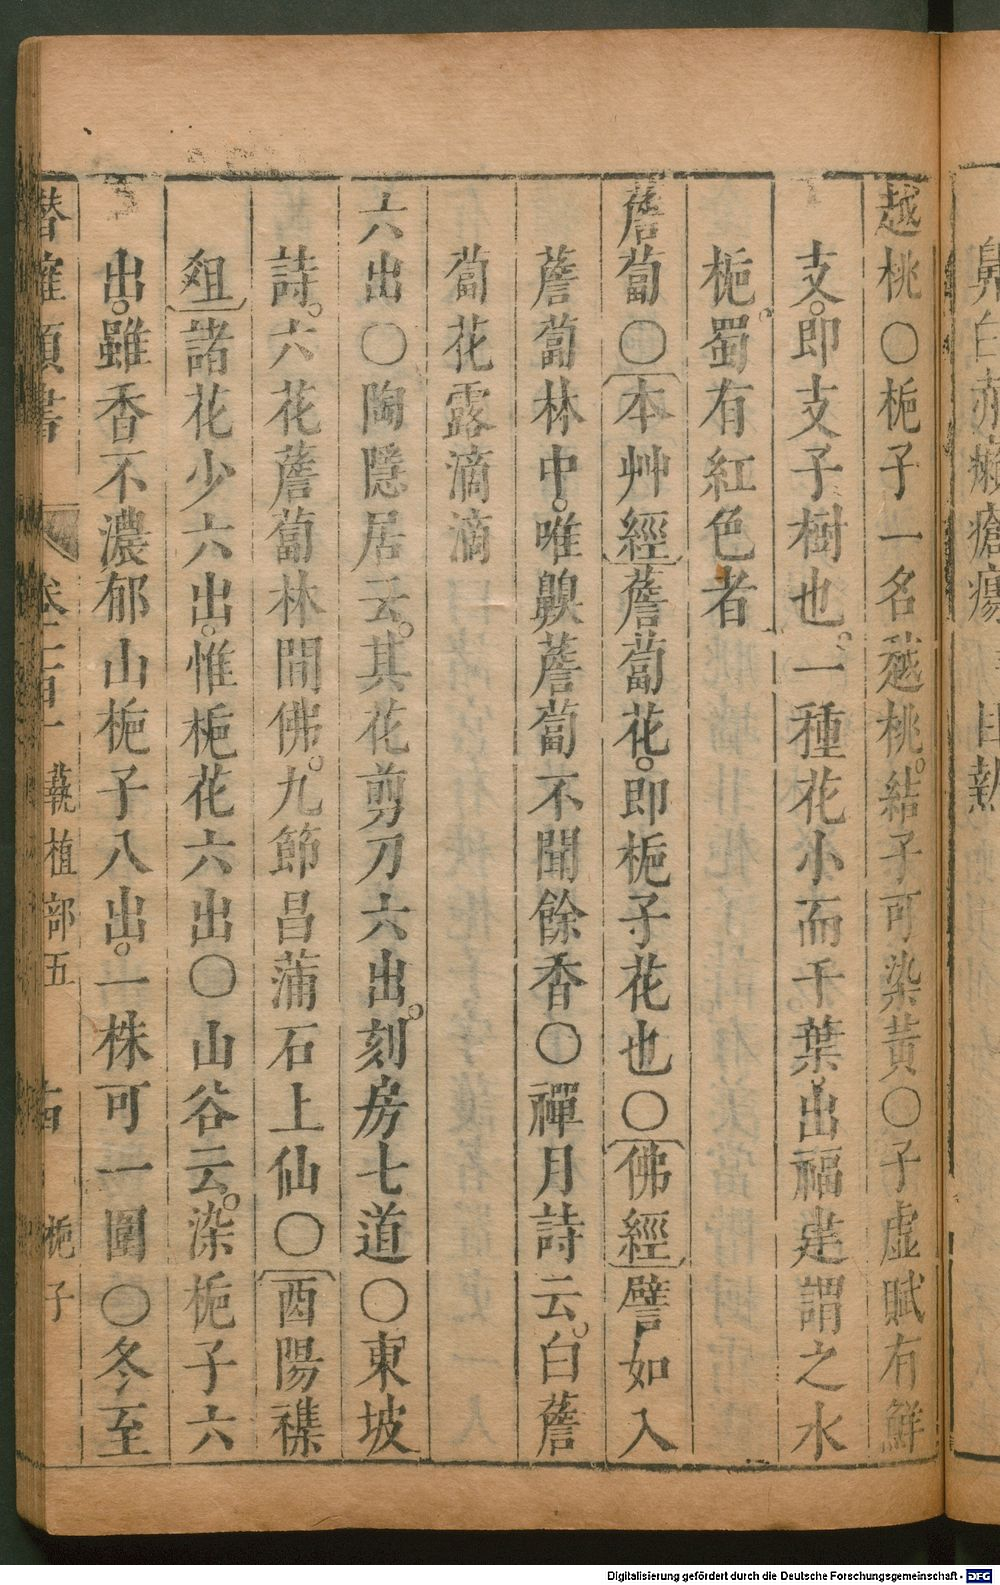 鼻白赤癩瘡瘍
越桃〇梔子一名越桃。結子可染黃〇子虛賦有鮮
支。即支子樹也。一種花小而千葉出福建謂之水
梔。蜀有紅色者
薝蔔〇本艸經薝蔔花。即梔子花也〇佛經譬如入
薝蔔林中。唯齅薝蔔不聞餘香〇禪月詩云。白薝
蔔花露滴滴
六出〇陶隱居云。其花剪刀六出。刻房七道〇東坡
詩。六花薝蔔林間佛。九節昌蒲石上仙〇酉陽襍
俎諸花少六出。惟梔花六出〇山谷云。染梔子六
出。雖香不濃郁山梔子八出。一株可一圍〇冬至
潛確類書 卷一百一 蓺植部五 梔子
Digitalisierung gefördert durch die Deutsche Forschungsgemeinschaft - DFG